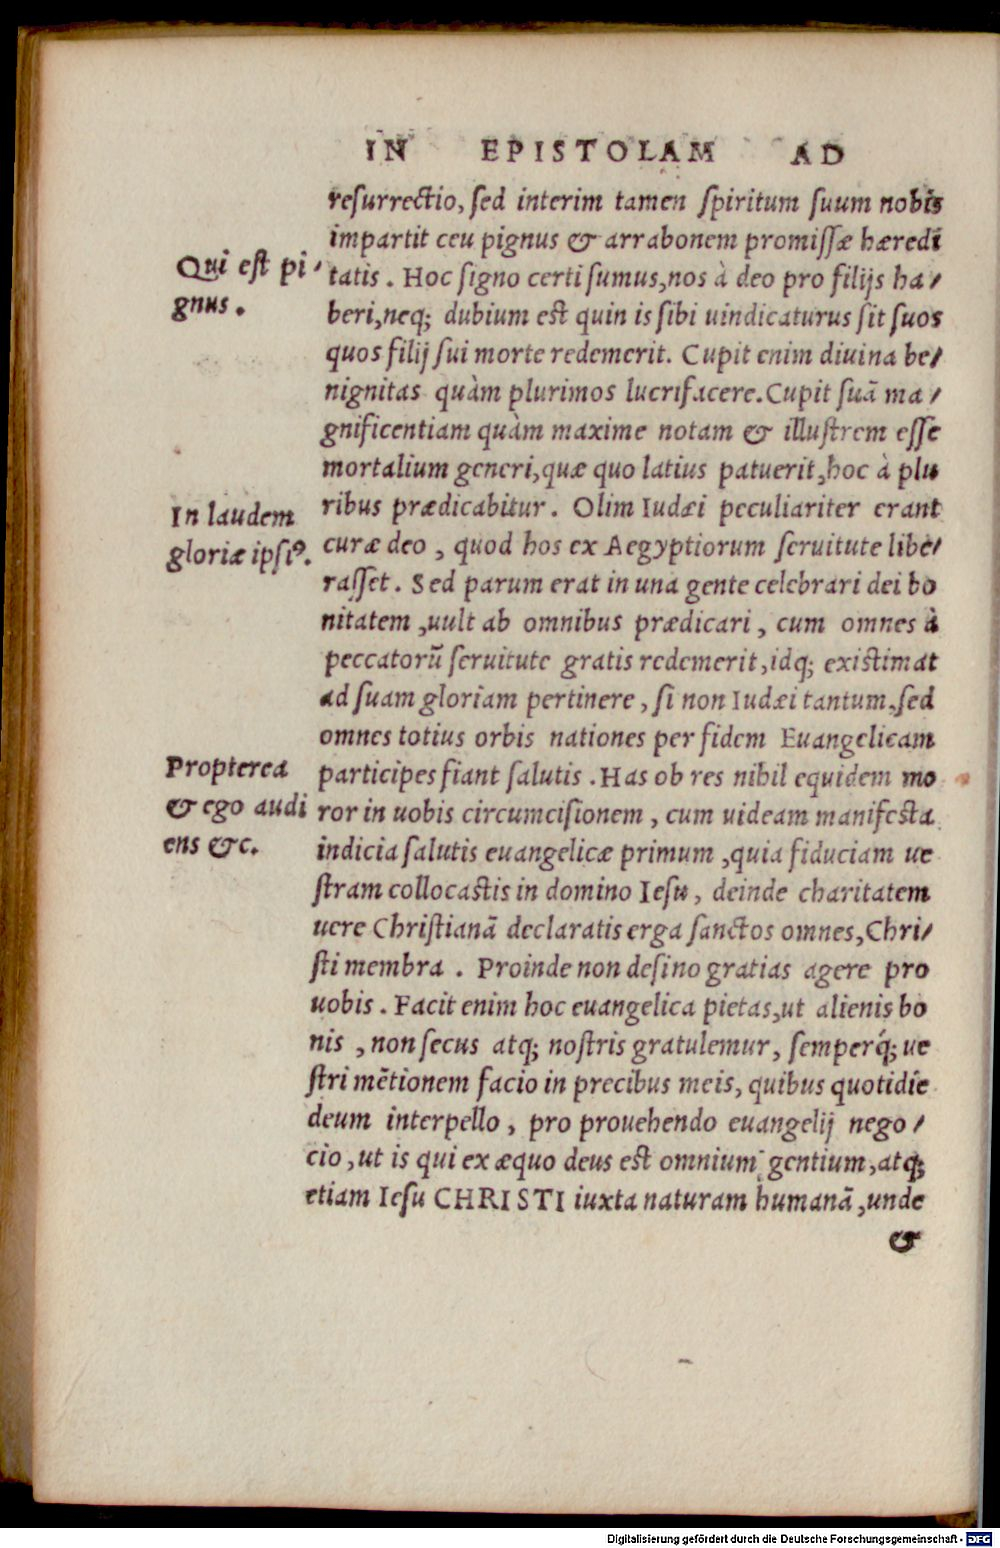 IN EPISTOLAM AD
resurrectio, sed interim tamen spiritum suum nobis
impartit ceu pignus & arrabonem promissæ hæredi
tatis. Hoc signo certi sumus, nos à deo pro filijs ha/
beri, neq; dubium est quin is sibi uindicaturus sit suos
quos filij sui morte redemerit. Cupit enim diuina be/
nignitas quàm plurimos lucrifacere. Cupit suā ma/
gnificentiam quàm maxime notam & illustrem esse
mortalium generi, quæ quo latius patuerit, hoc à plu
ribus prædicabitur. Olim Iudæi peculiariter erant
curæ deo, quod hos ex Aegyptiorum seruitute libe/
rasset. Sed parum erat in una gente celebrari dei bo
nitatem, uult ab omnibus prædicari, cum omnes à
peccatorū seruitute gratis redemerit, idq; existimat
ad suam gloriam pertinere, si non Iudæi tantum, sed
omnes totius orbis nationes per fidem Euangelicam
participes fiant salutis. Has ob res nihil equidem mo
ror in uobis circumcisionem, cum uideam manifesta
indicia salutis euangelicæ primum, quia fiduciam ue
stram collocastis in domino Iesu, deinde charitatem
uere Christianā declaratis erga sanctos omnes, Chri/
sti membra. Proinde non desino gratias agere pro
uobis. Facit enim hoc euangelica pietas, ut alienis bo
nis, non secus atq; nostris gratulemur, semperq́; ue
stri mētionem facio in precibus meis, quibus quotidie
deum interpello, pro prouehendo euangelij nego/
cio, ut is qui ex æquo deus est omnium gentium, atq;
etiam Iesu CHRISTI iuxta naturam humanā, unde
&
Qui est pi/
gnus.
In laudem
gloriæ ipsiꝰ.
Propterea
& ego audi
ens &c.
Digitalisierung gefördert durch die Deutsche Forschungsgemeinschaft - DFG